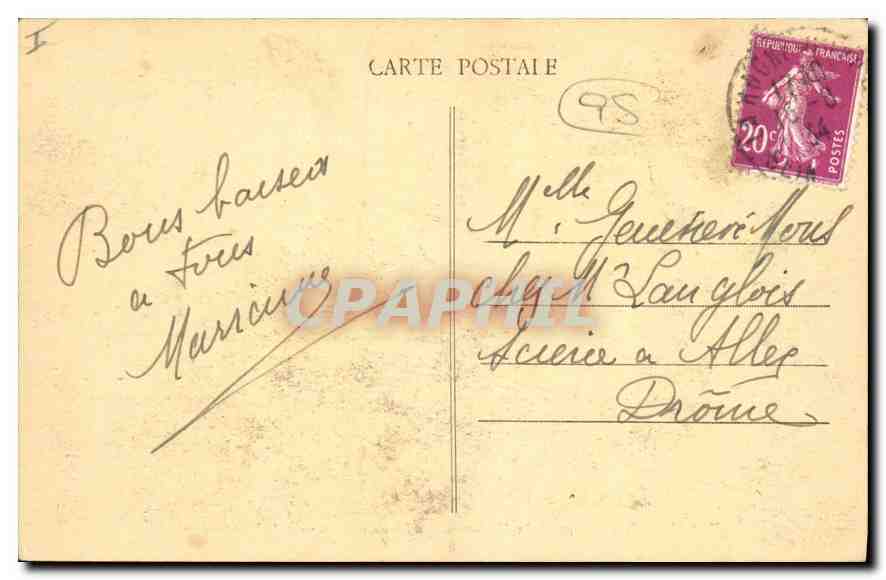 I
CARTE POSTALE
95
REPUBLIQUE FRANCAISE
20c
POSTES
Bons baisers
a tous
Marianne
Mlle Genevieve Mous
chez Mr Langlois
Scierie a Allex
Drôme
CPAPHIL